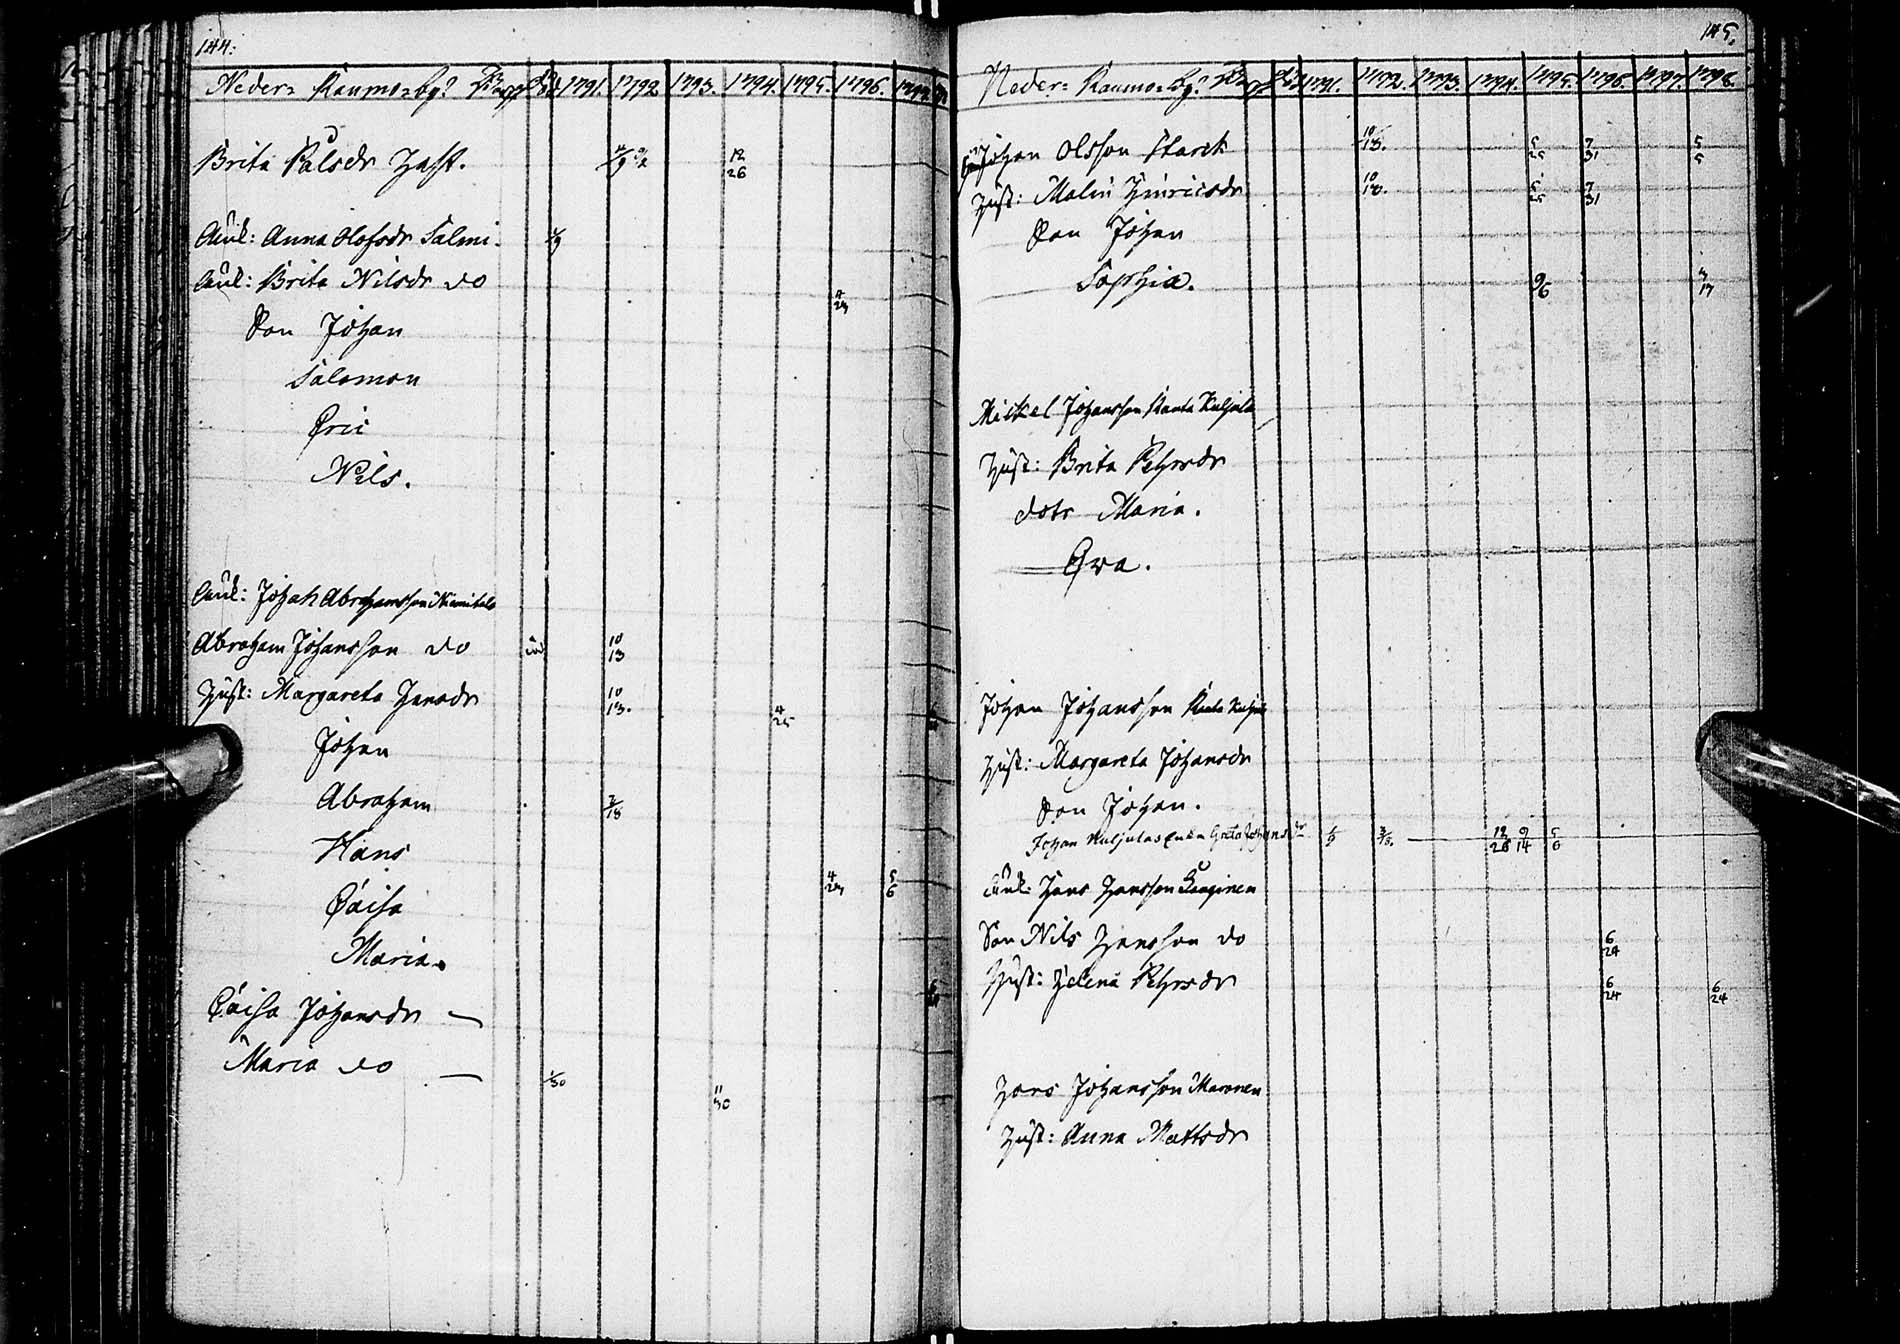 144:
Neder= Raumo=by? 1791 1792 1793. 1794. 1795. 1796.
Brita Pålsdr 12/26
Enk: Anna Olofsdr Salmi. 1/9
Enk: Brita Nilsdr do 4/24
Son Johan
Salomon
Eric
Nils.
Enk: Johan Abrahamsson Niemitalo
Abraham Johansson do död 10/13
Hust: Margareta Hansdr 10/13. 4/25
Johan
Abraham 3/18
Hans
Caisa 4/24 5/6
Maria.
Caisa Johansdr —
Maria do — 1/30 11/30
145.
Neder= Raumo=by? 1791. 1792. 1793. 1794. 1795. 1796. 1797. 1798.
Johan Olsson Starck 10/13. 5/25 7/31 5/5
Hust: Malin Hinricsdr 10/18. 5/25 7/31
Son Johan
Sophia. 9/6
Mickel Johansson Ranta Kuljula
Hust: Brita Pehrsdr
dotr Maria.
Eva.
Johan Johansson Ranta
Hust: Margareta Johansdr
Son Johan.
Johan Kuljulas Enka Greta Johansdr 12/26 9/14 5/6
Enk: Hans Hansson
Son Nils Hansson do 6/24
Hust: Helena Pehrsdr 6/24 6/24
Hans Johansson Maronen
Hust: Anna Mattsdr